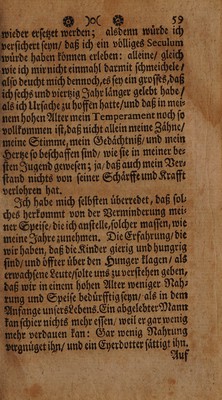 59
wieder ersetzet werden; alsdenn würde ich
versichert seyn/ daß ich ein völliges Seculum
würde haben können erleben: alleine/ gleich
wie ich mir nicht einmahl darmit schmeichele/
also deucht mich dennoch, es sey ein grosses, daß
ich sechs und viertzig Jahr länger gelebt habe/
als ich Ursache zu hoffen hatte/ und daß in mei-
nem hohen Alter mein Temperament noch so
vollkommen ist, daß nicht allein meine Zähne/
meine Stimme, mein Gedächtniß/ und mein
Hertze so beschaffen sind/ wie sie in meiner be-
sten Jugend gewesen; ja, daß auch mein Ver-
stand nichts von seiner Schärffe und Krafft
verlohren hat.
Ich habe mich selbsten überredet, daß sol-
ches herkommt von der Verminderung mei-
ner Speise/ die ich anstelle, solcher massen, wie
meine Jahre zunehmen. Die Erfahrung/ die
wir haben, daß die Kinder gierig und hungrig
sind/ und öffter über den Hunger klagen/ als
erwachsene Leute/ solte uns zu verstehen geben,
daß wir in einem hohen Alter weniger Nah-
rung und Speise bedürfftig seyn/ als in dem
Anfange unsers Lebens. Ein abgelebter Mann
kan schier nichts mehr essen/ weil er gar wenig
mehr verdauen kan: Gar wenig Nahrung
virgnüget ihn/ und ein Eyerdotter sättigt ihn.
Auf